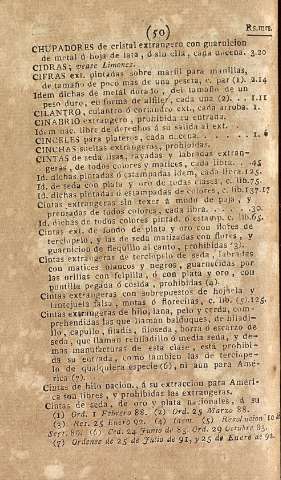 (50) Rs.mrs.
CHUPADORES de cristal extrangero con guarnicion
de metal ó hoja de lata, ó sin ella, cada docena. 3.20
CIDRAS, vease Limones.
CIFRAS ext. pintadas sobre marfil para manillas,
de tamaño de poco mas de una peseta, c. par (1). 2.14
Idem dichas de metal dorado, del tamaño de un
peso duro, en forma de alfiler, cada una (2). .. 1.11
CILANTRO, culantro ó coriandro ext. cada arroba. 1.
CINABRIO extrangero, prohibida su entrada.
Idem nac. libre de derechos á su salida al ext.
CINCELES para plateros, cada docena. . . . . 1. 6
CINCHAS sueltas extrangeras, prohibidas.
CINTAS de seda lisas, rayadas y labradas extran-
geras, de todos colores y matices, cada libra. .. 45
Id. dichas pintadas ó estampadas idem, cada libra. 125.
Id. de seda con plata y oro de todas clases, c. lib. 75.
Id. dichas pintadas ó estampadas de colores, c. lib. 137.17
Cintas extrangeras sin texer á modo de paja, y
prensadas de todos colores, cada libra. . . . . 30.
Id. dichas de todos colores pintad. ó estamp. c. lib. 65.
Cintas ext. de fondo de plata y oro con flores de
terciopelo, y las de seda matizadas con flores, y
guarnicion de fleqüillo al canto, prohibidas (3).
Cintas extrangeras de terciopelo de seda, labradas
con matices blancos y negros, guarnecidas por
las orillas con felpilla, ó con plata y oro, con
puntilla pegada ó cosida, prohibidas (4).
Cintas extrangeras con sobrepuestos de hojuela y
lentejuela falsa, motas ó florecitas, c. lib. (5). 125.
Cintas extrangeras de hilo, lana, pelo y cerda, com-
prehendidas las que llaman balduques, de hiladi-
llo, capullo, filadiz, filoseda, borra ó escarzo de
seda, que llaman rehiladillo ó media seda, y de-
mas manufacturas de esta clase, está prohibi-
da su entrada, como tambien las de terciope-
lo de qualquiera especie (6), ni aun para Amé-
rica (7).
Cintas de hilo nacion. á su extraccion para Améri-
ca son libres, y prohibidas las extrangeras.
Cintas de seda, de oro y plata nacionales, á su
(1) Ord. 1 Febrero 88. (2) Ord. 25 Marzo 88.
(3) Rer. 25 Enero 92. (4) Idem. (5) Resolucion 10 de
Sept. 89. (6) Ced. 24 Junio de 83. Ord. 29 Octubre 83.
(7) Ordenes de 25 de Julio de 91, y 25 de Enero de 92.